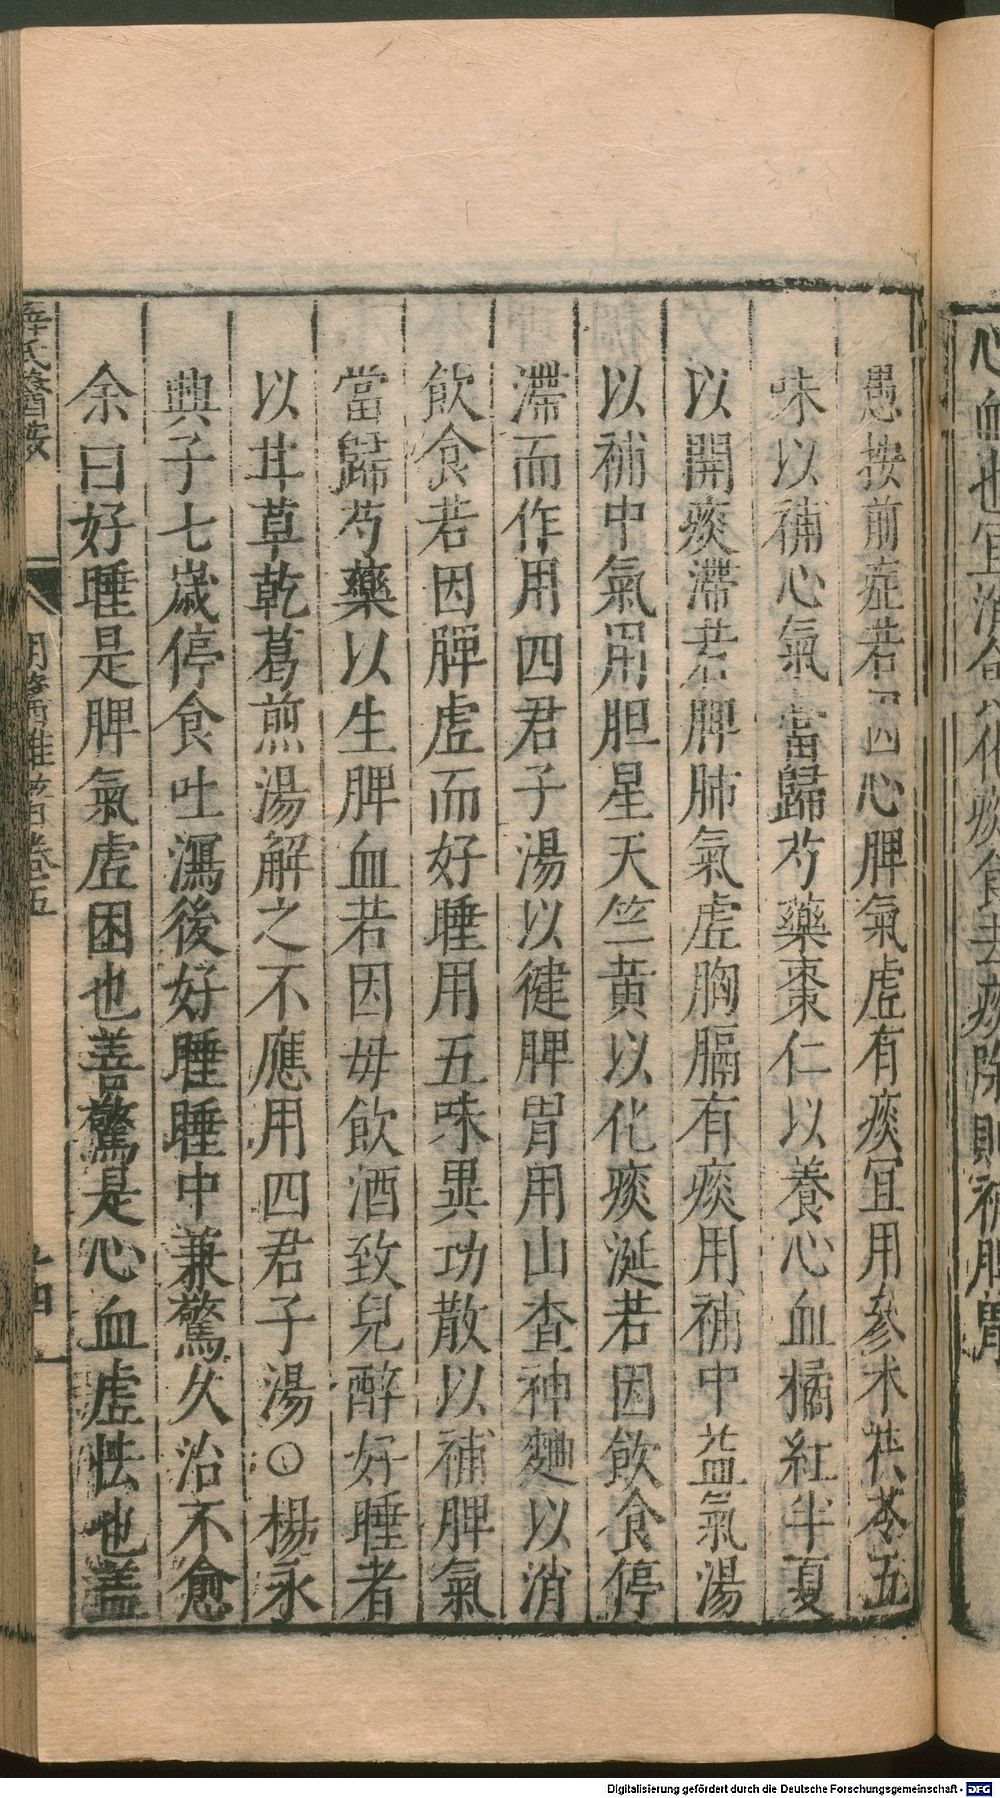 心血也宜消食化痰食去痰除則補脾胃
愚按前症若因心脾氣虛有痰宜用參朮茯苓五
味以補心氣當歸芍藥棗仁以養心血橘紅半夏
以開痰滯若脾肺氣虛胸膈有痰用補中益氣湯
以補中氣用胆星天竺黃以化痰涎若因飲食停
滯而作用四君子湯以健脾胃用山查神麯以消
飲食若因脾虛而好睡用五味異功散以補脾氣
當歸芍藥以生脾血若因母飲酒致兒醉好睡者
以甘草乾葛煎湯解之不應用四君子湯○楊永
興子七歲停食吐瀉後好睡睡中兼驚久治不愈
余曰好睡是脾氣虛困也善驚是心血虛怯也盖
薛氏醫按
明醫雜著卷五
Digitalisierung gefördert durch die Deutsche Forschungsgemeinschaft - DFG